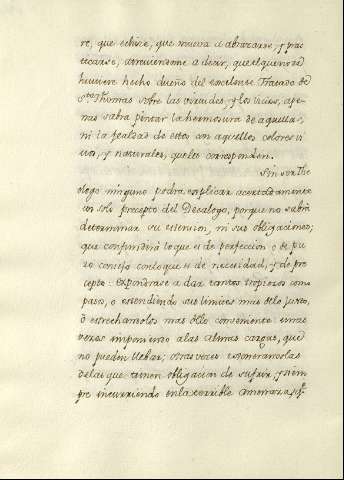 re, que estime, que mueva a abrazarse, y prac
ticarse; atreviendome a decir, que el que no se
huviere hecho dueño del excelente Tratado de
Sto. Thomas sobre las virtudes, y los vicios, ape-
nas sabra pintar la hermosura de aquellas,
ni la fealdad de estos con aquellos colores vi
vos, y naturales, que les corresponden.
Sin ser The
ologo ninguno podra explicar acertadamente
un solo precepto del Decalogo, porque no sabra
determinar su extension, ni sus obligaciones;
que confundirá lo que es de perfeccion o de pu
ro consejo con lo que es de necesidad, y de pre
cepto: Expondrase a dar tantos tropiezos como
pasos, o estendiendo sus limites mas de lo justo,
ò estrechandolos mas de lo conveniente: unas
veces imponiendo a las almas cargas, que
no pueden llebar; otras veces exonerandolas
de las que tienen obligacion de sufrir; y siem
pre incurriendo en la terrible amenaza, q.e